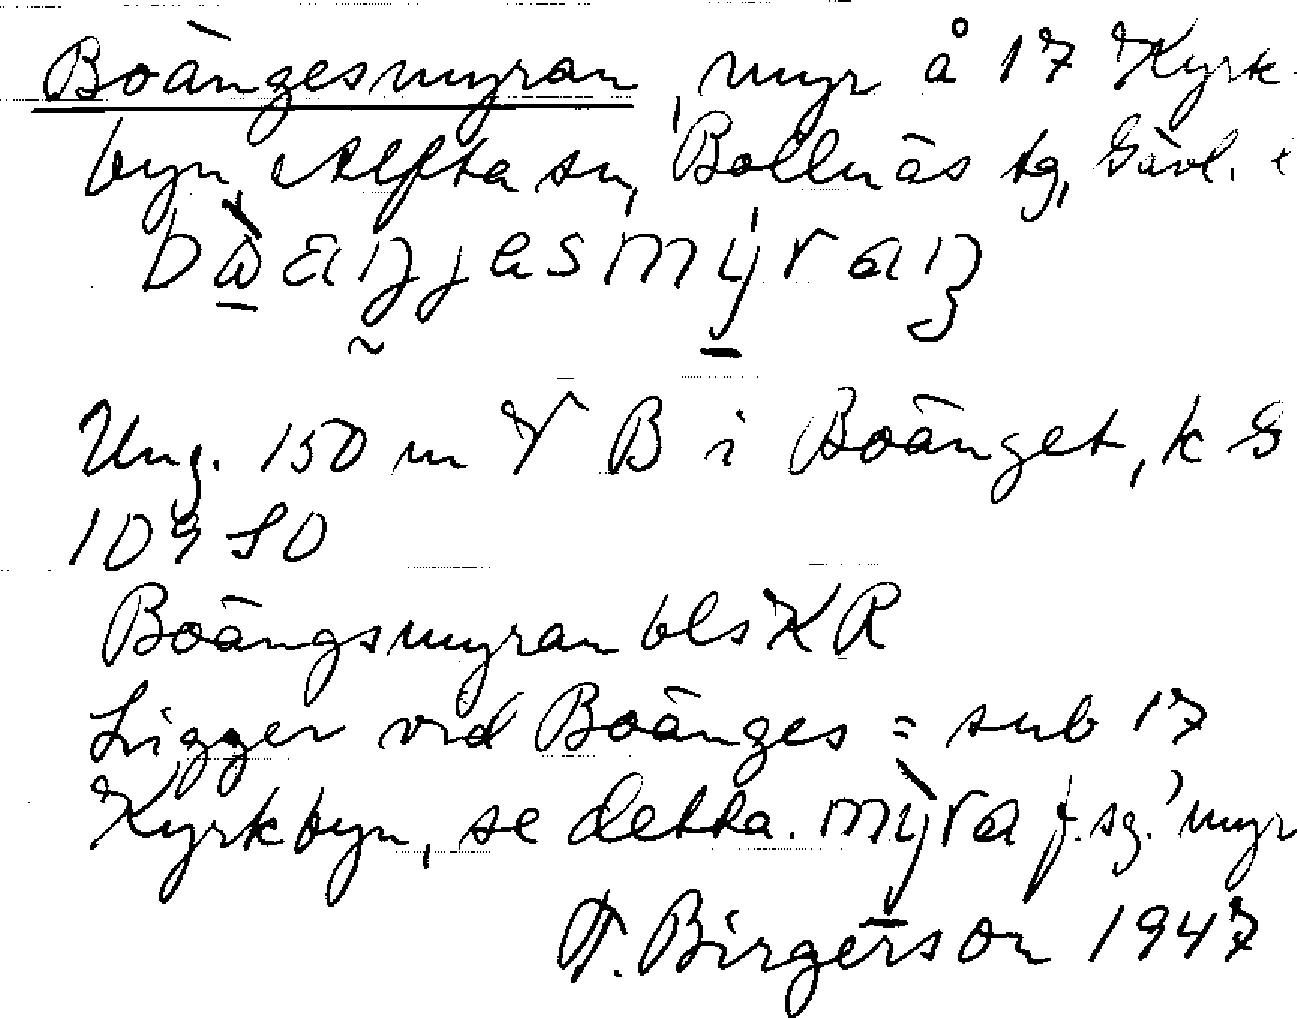 Boängesmyran, myr å 17 Kyrk-
byn, Alfta sn, Bollnäs tg, Gävl.
Ung. 150 m V B i Boänget, k G
109 SO
Boängsmyran bls KR
Ligger vid Boänges = sub 17
Kyrkbyn, se detta. mỳra f. sg. 'myr
F. Birgerson 1947